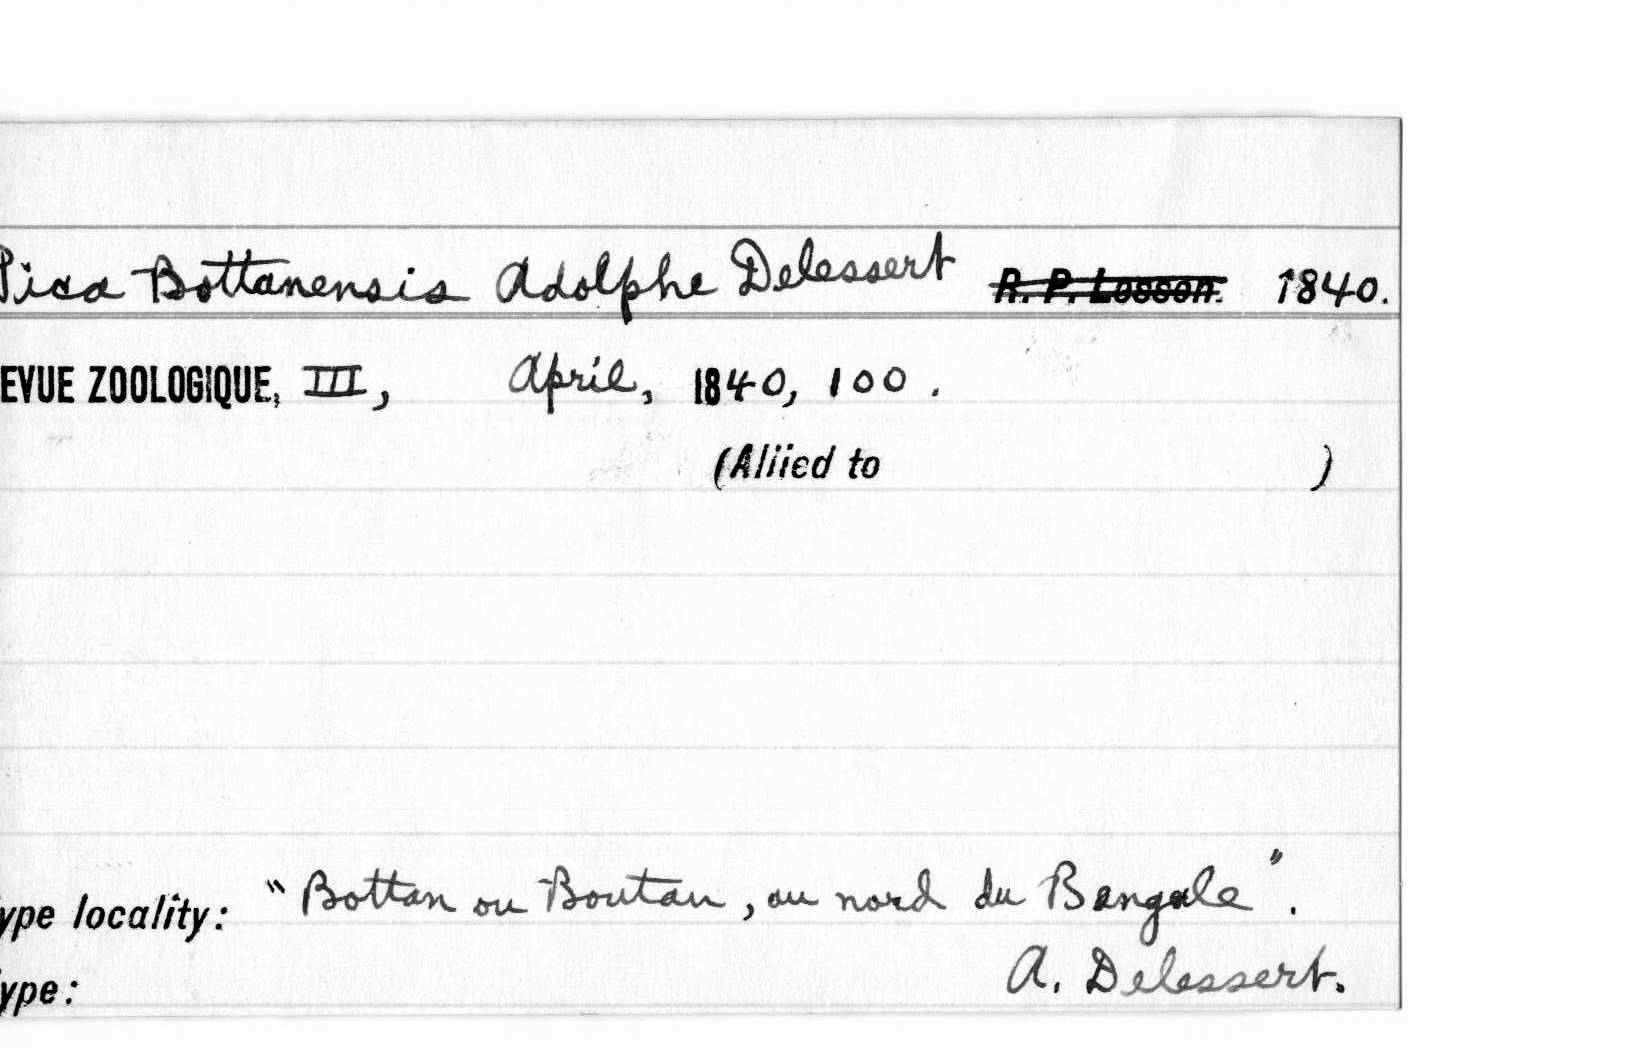 Pica Bottanensis Adolphe Delessert R. P. Lesson. 1840.
EVUE ZOOLOGIQUE, III, April, 1840, 100.
(Allied to )
ype locality: "Bottan ou Boutan, au nord du Bengale".
ype: A. Delessert.